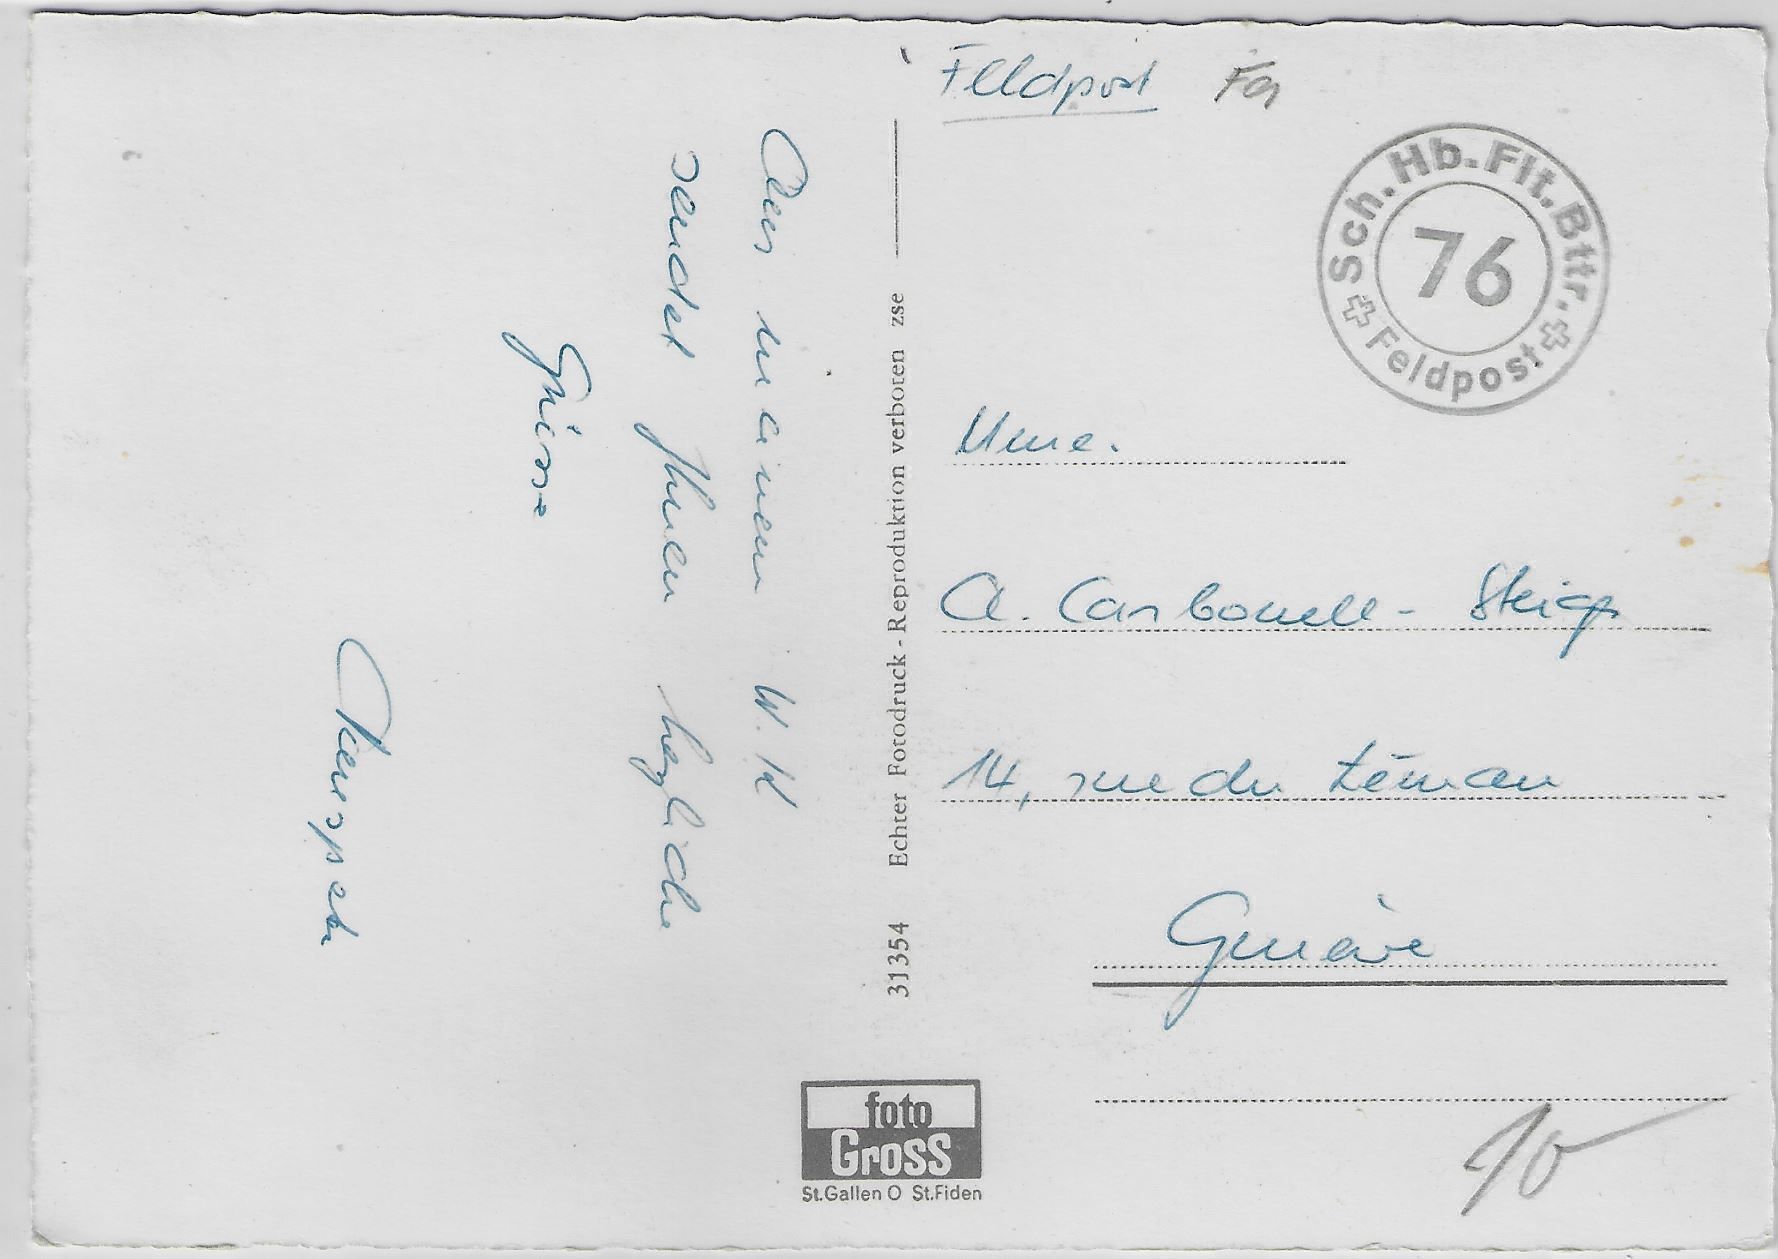 Feldpost
Sch. Hb. Flt. Bttr.
76
Feldpost
Mme.
A. Carbonell - Steiger
14, rue du Léman
Genève
Aus meinem W.K
sendet Ihnen herzliche
Grüsse
31354 Echter Fotodruck - Reproduktion verboten zse
foto
Gross
St.Gallen O St.Fiden
10